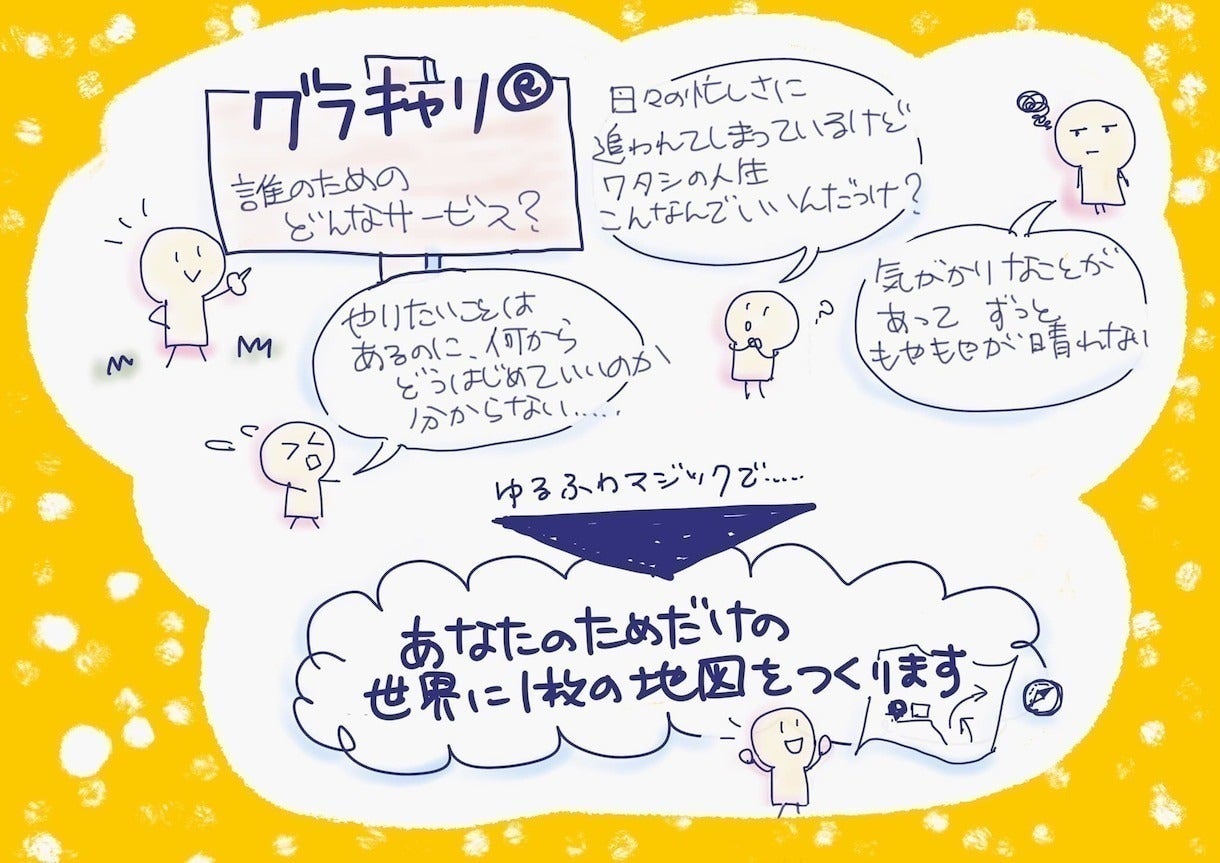 グラキャリ®
誰のための
どんなサービス?
日々の忙しさに
追われてしまっているけど
ワタシの人生
こんなんでいいんだっけ?
気がかりなことが
あって ずっと
もやもやが晴れない
やりたいことは
あるのに、何から
どうはじめていいのか
分からない……
?
ゆるふわマジックで……
あなたのためだけの
世界に1枚の地図をつくります